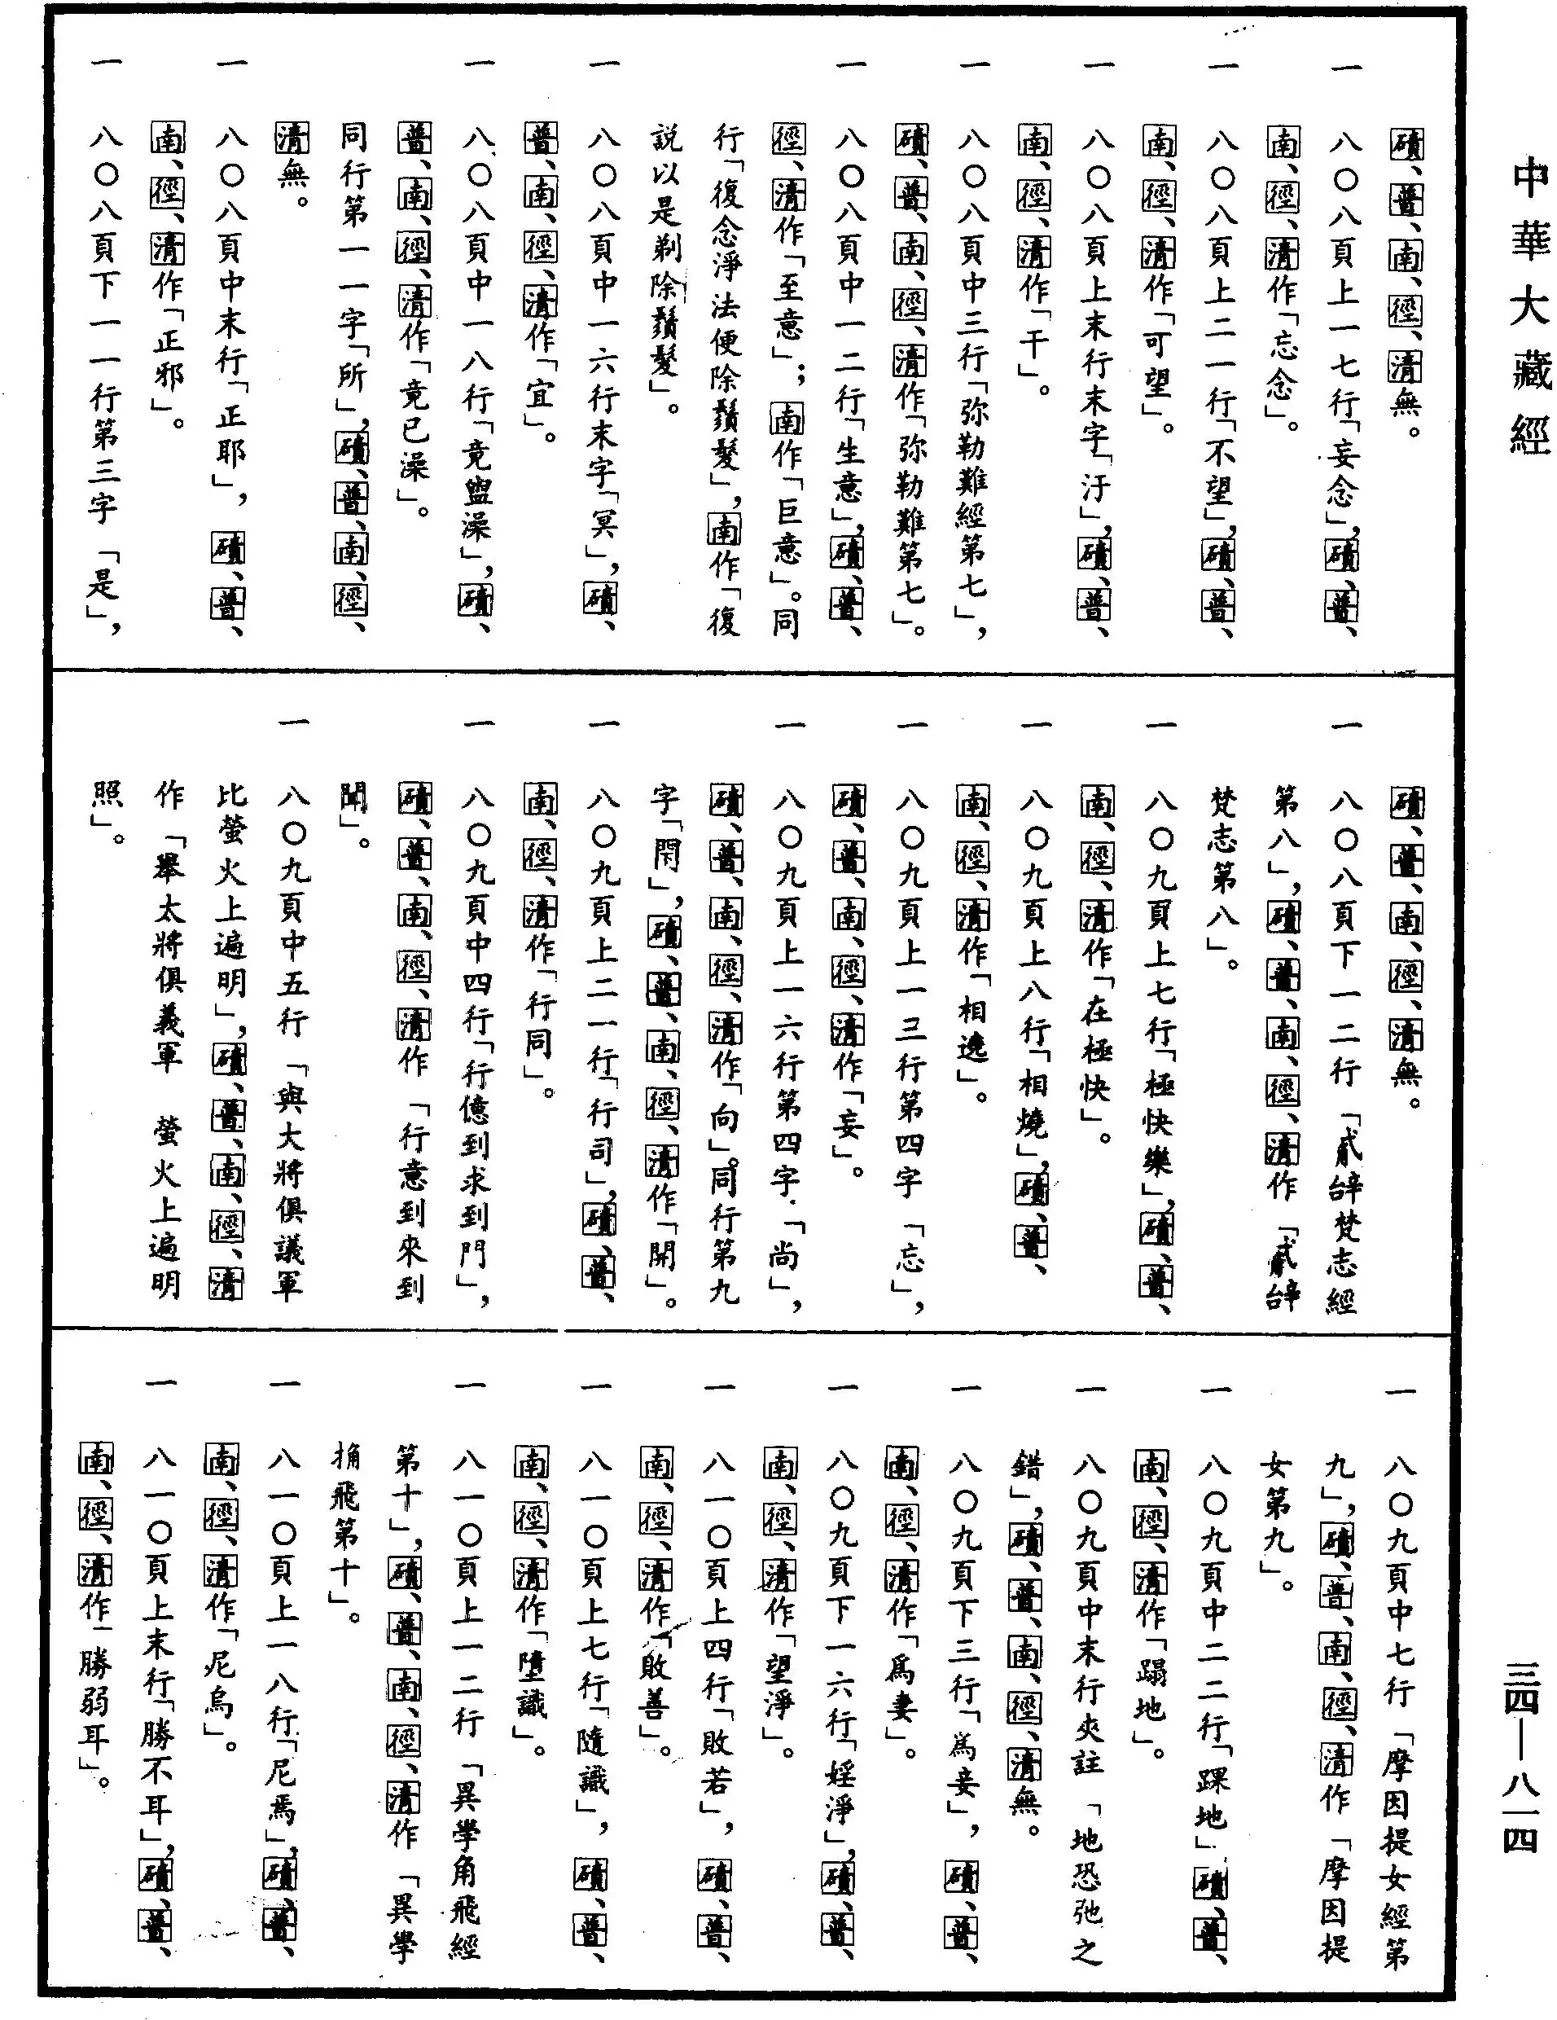 中華大藏經
磧、普、南、徑、清無。
一 八〇八頁上一七行「妄念」，磧、普、
南、徑、清作「忘念」。
一 八〇八頁上二一行「不望」，磧、普、
南、徑、清作「可望」。
一 八〇八頁上末行末字「汙」，磧、普、
南、徑、清作「干」。
一 八〇八頁中三行「弥勒難經第七」，
磧、普、南、徑、清作「弥勒難第七」。
一 八〇八頁中一二行「生意」，磧、普、
徑、清作「至意」；南作「巨意」。同
行「復念淨法便除鬚髮」，南作「復
説以是剃除鬚髮」。
一 八〇八頁中一六行末字「冥」，磧、
普、南、徑、清作「宜」。
一 八〇八頁中一八行「竟盥澡」，磧、
普、南、徑、清作「竟已澡」。
同行第一一字「所」，磧、普、南、徑、
清無。
一 八〇八頁中末行「正耶」，磧、普、
南、徑、清作「正邪」。
一 八〇八頁下一一行第三字「是」，
磧、普、南、徑、清無。
一 八〇八頁下一二行「貳辝梵志經
第八」，磧、普、南、徑、清作「貳辝
梵志第八」。
一 八〇九頁上七行「極快樂」，磧、普、
南、徑、清作「在極快」。
一 八〇九頁上八行「相燒」，磧、普、
南、徑、清作「相遶」。
一 八〇九頁上一三行第四字「忘」，
磧、普、南、徑、清作「妄」。
一 八〇九頁上一六行第四字「尚」，
磧、普、南、徑、清作「向」。同行第九
字「閇」，磧、普、南、徑、清作「開」。
一 八〇九頁上二一行「行司」，磧、普、
南、徑、清作「行同」。
一 八〇九頁中四行「行億到求到門」，
磧、普、南、徑、清作「行意到來到
聞」。
一 八〇九頁中五行「與大將俱議軍
比螢火上遍明」，磧、普、南、徑、清
作「舉太將俱義軍　螢火上遍明
照」。
一 八〇九頁中七行「摩因提女經第
九」，磧、普、南、徑、清作「摩因提
女第九」。
一 八〇九頁中二二行「踝地」磧、普、
南、徑、清作「蹋地」。
一 八〇九頁中末行夾註「地恐弛之
錯」，磧、普、南、徑、清無。
一 八〇九頁下三行「爲妾」，磧、普、
南、徑、清作「爲妻」。
一 八〇九頁下一六行「婬淨」，磧、普、
南、徑、清作「望淨」。
一 八一〇頁上四行「敗若」，磧、普、
南、徑、清作「敗善」。
一 八一〇頁上七行「隨識」，磧、普、
南、徑、清作「墮識」。
一 八一〇頁上一二行「異學角飛經
第十」，磧、普、南、徑、清作「異學
捔飛第十」。
一 八一〇頁上一八行「尼焉」，磧、普、
南、徑、清作「尼烏」。
一 八一〇頁上末行「勝不耳」，磧、普、
南、徑、清作「勝弱耳」。
三四—八一四